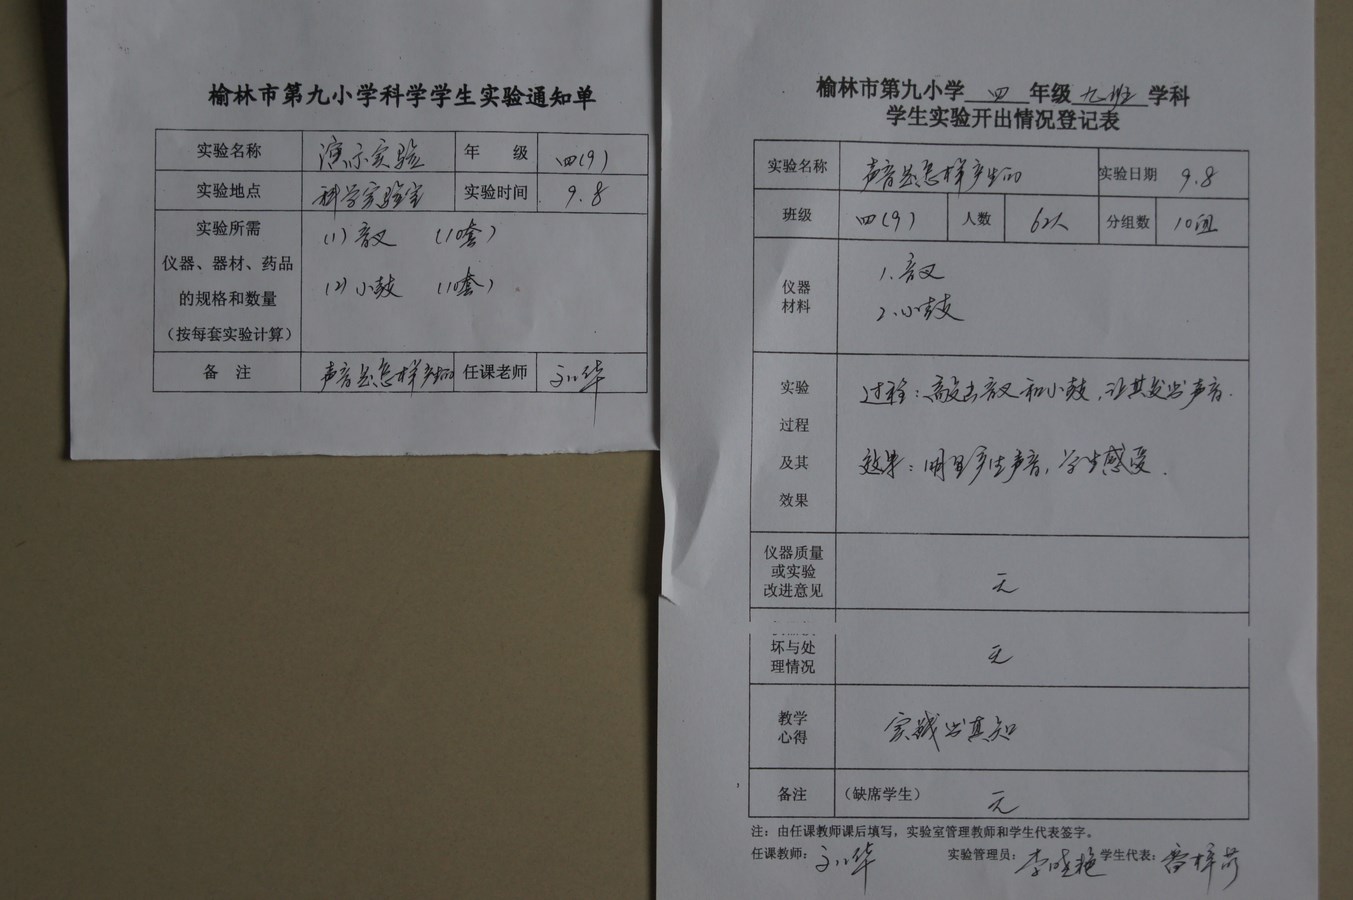 榆林市第九小学科学学生实验通知单
实验名称 演示实验 年 级 四(9)
实验地点 科学实验室 实验时间 9.8
实验所需
仪器、器材、药品
的规格和数量
（按每套实验计算）
(1) 音叉 (10套)
(2) 小鼓 (10套)
备 注 声音是怎样产生的 任课老师
榆林市第九小学 四 年级 九班 学科
学生实验开出情况登记表
实验名称 声音是怎样产生的 实验日期 9.8
班级 四(9) 人数 62人 分组数 10组
仪器
材料
1.音叉
2.小鼓
实验
过程
及其
效果
过程：敲击音叉和小鼓,让其发出声音.
效果：明显产生声音,学生感受.
仪器质量
或实验
改进意见
无
坏与处
理情况
无
教学
心得
实践出真知
备注 （缺席学生） 无
注：由任课教师课后填写，实验室管理教师和学生代表签字。
任课教师： 实验管理员：李晓艳 学生代表：